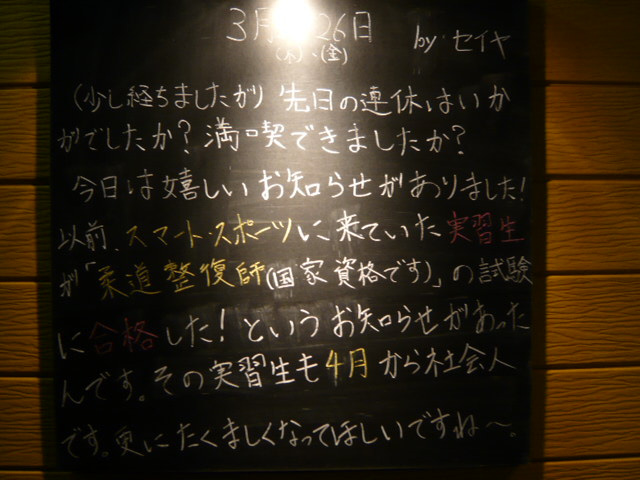 3月 26日 by セイヤ
(木)、(金)
(少し経ちましたが) 先日の連休はいか
がでしたか？満喫できましたか？
今日は嬉しいお知らせがありました！
以前、スマート・スポーツに来ていた実習生
が「柔道整復師(国家資格です)」の試験
に合格した！というお知らせがあった
んです。その実習生も4月から社会人
です。更にたくましくなってほしいですね〜。